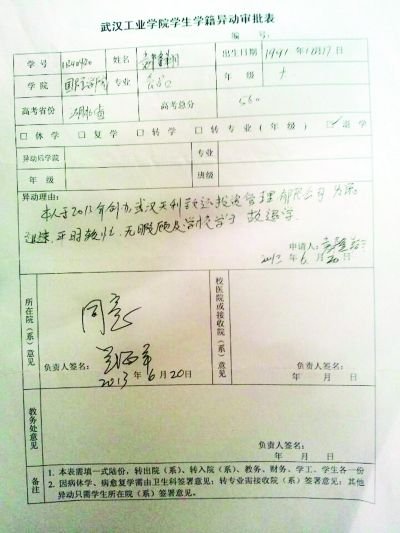 武汉工业学院学生学籍异动审批表
编 号：
学 号 姓名 出生日期 1991年12月17日
学 院 国际学院 专业 年 级 大一
高考省份 湖北省 高考总分 560
□休 学 □复 学 □转 学 □转 专 业（ 年 级 ） ☑退 学
异动后学院 专业
年 级 班级
异动理由：
本人于2013年创办武汉天利 投资管理有限公司
平时较忙，无暇顾及学校学习 故退学.
申请人：
2013年6月20日
所在院（系）意见
同意
负责人签名：
2013年6月20日
校医院或接收院（系）意见
负责人签名：
年 月 日
教务处意见
负责人签名：
年 月 日
备注
1. 本表需填一式陆份，转出院（系）、转入院（系）、教务、财务、学工、学生各一份
2. 因病休学、病愈复学需由卫生科签署意见；转专业需接收院（系）签署意见；其他
异动只需学生所在院（系）签署意见。